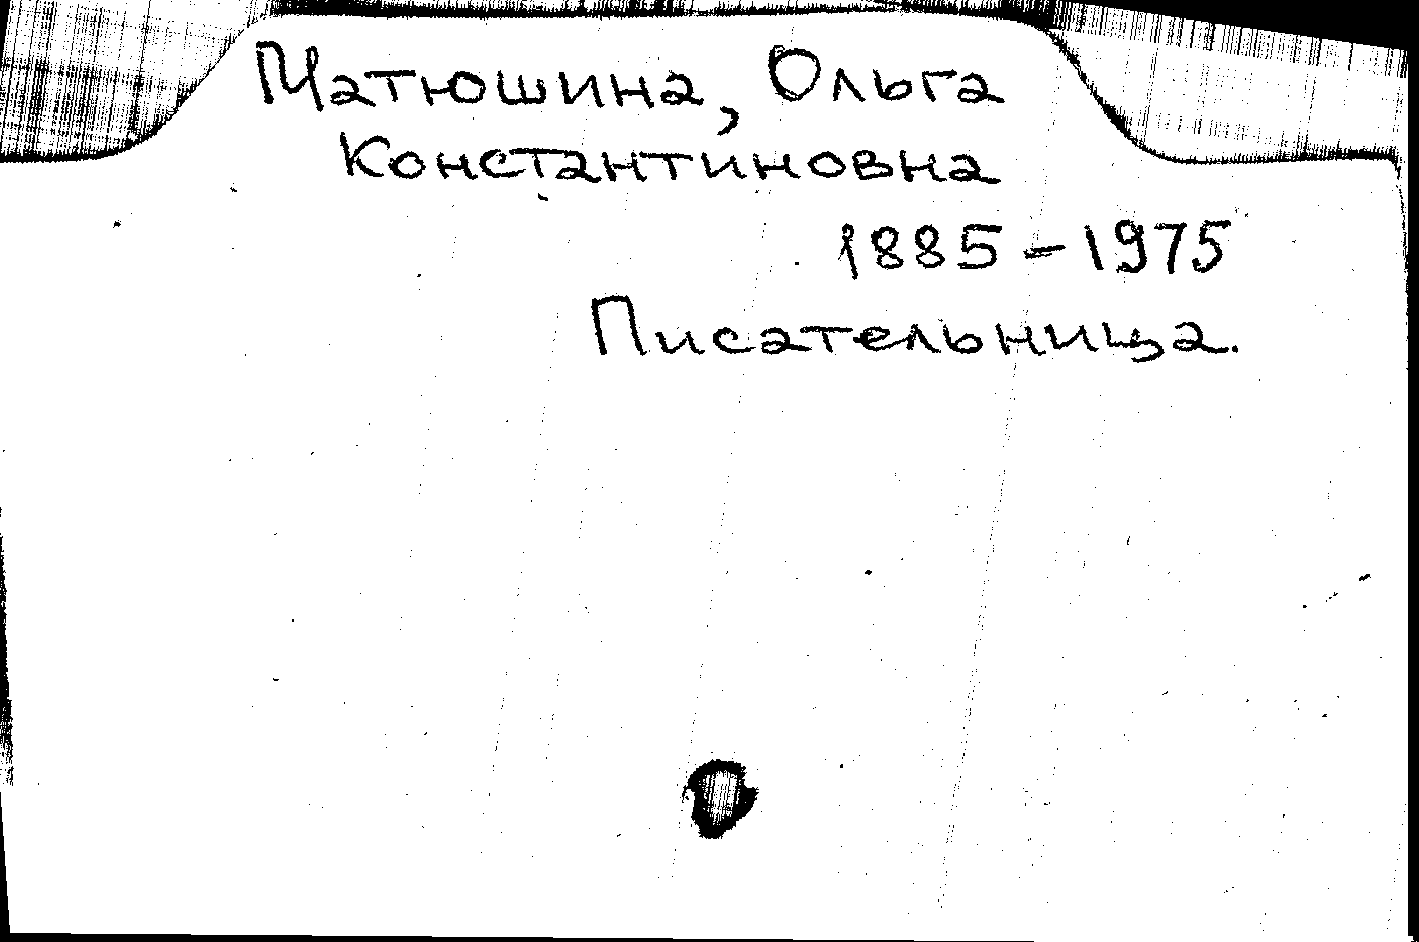 Матюшина, Ольга
Константиновна
1885-1975
Писательница.